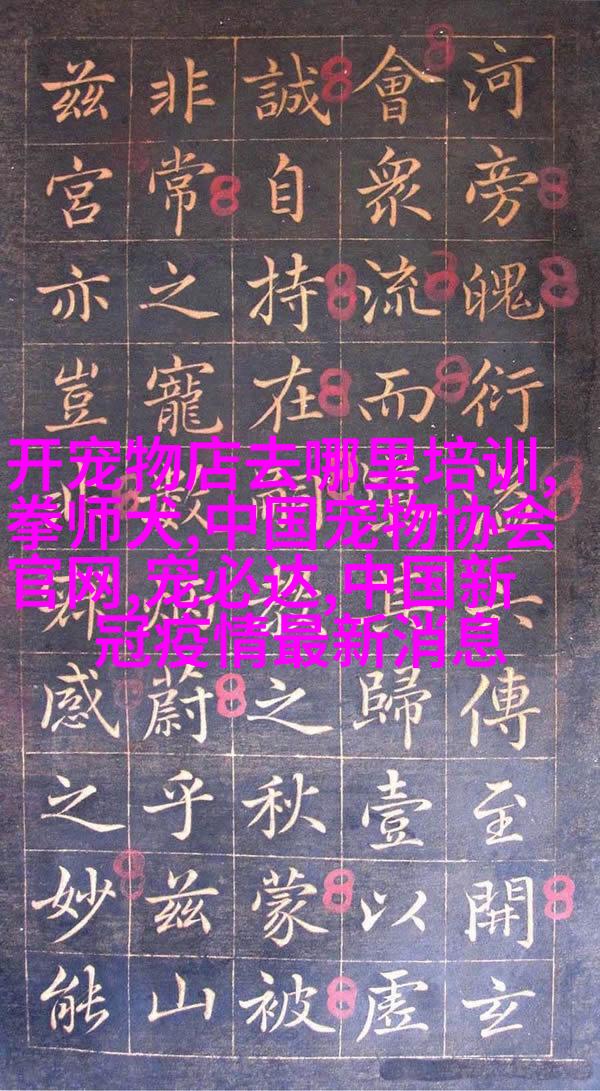 河旁魄衍傳至開玄
會眾流而歸壹以虛
誠自持在之秋蒙被
非常之寵數蔚乎兹山
兹宮亦豈感之妙能
开宠物店去哪里培训,
拳师犬,中国宠物协会
官网,宠必达,中国新
冠疫情最新消息